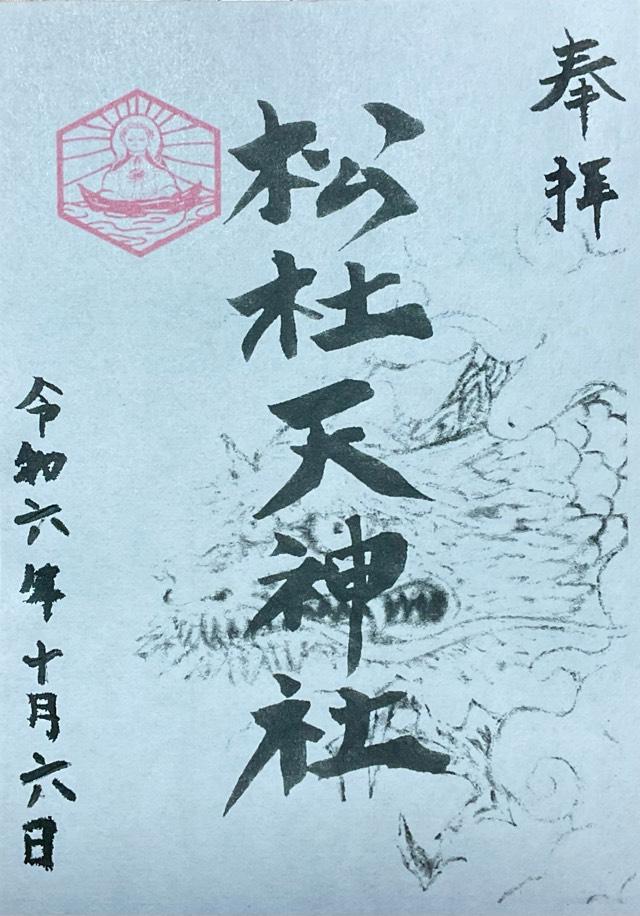 奉拝
松杜天神社
令和六年十月六日